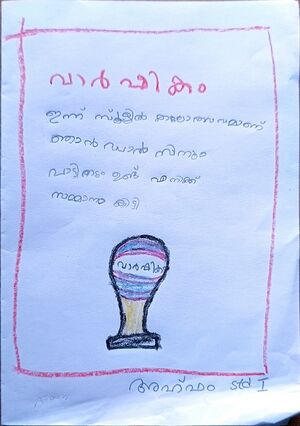 വാർഷികം
ഇന്ന് സ്കൂളിൽ കലോത്സവമാണ്
ഞാൻ ഡാൻസിനും
പാട്ടിനും ഉണ്ട് എനിക്ക്
സമ്മാനം കിട്ടി
വാർഷികം
അഹ്ഫം std I